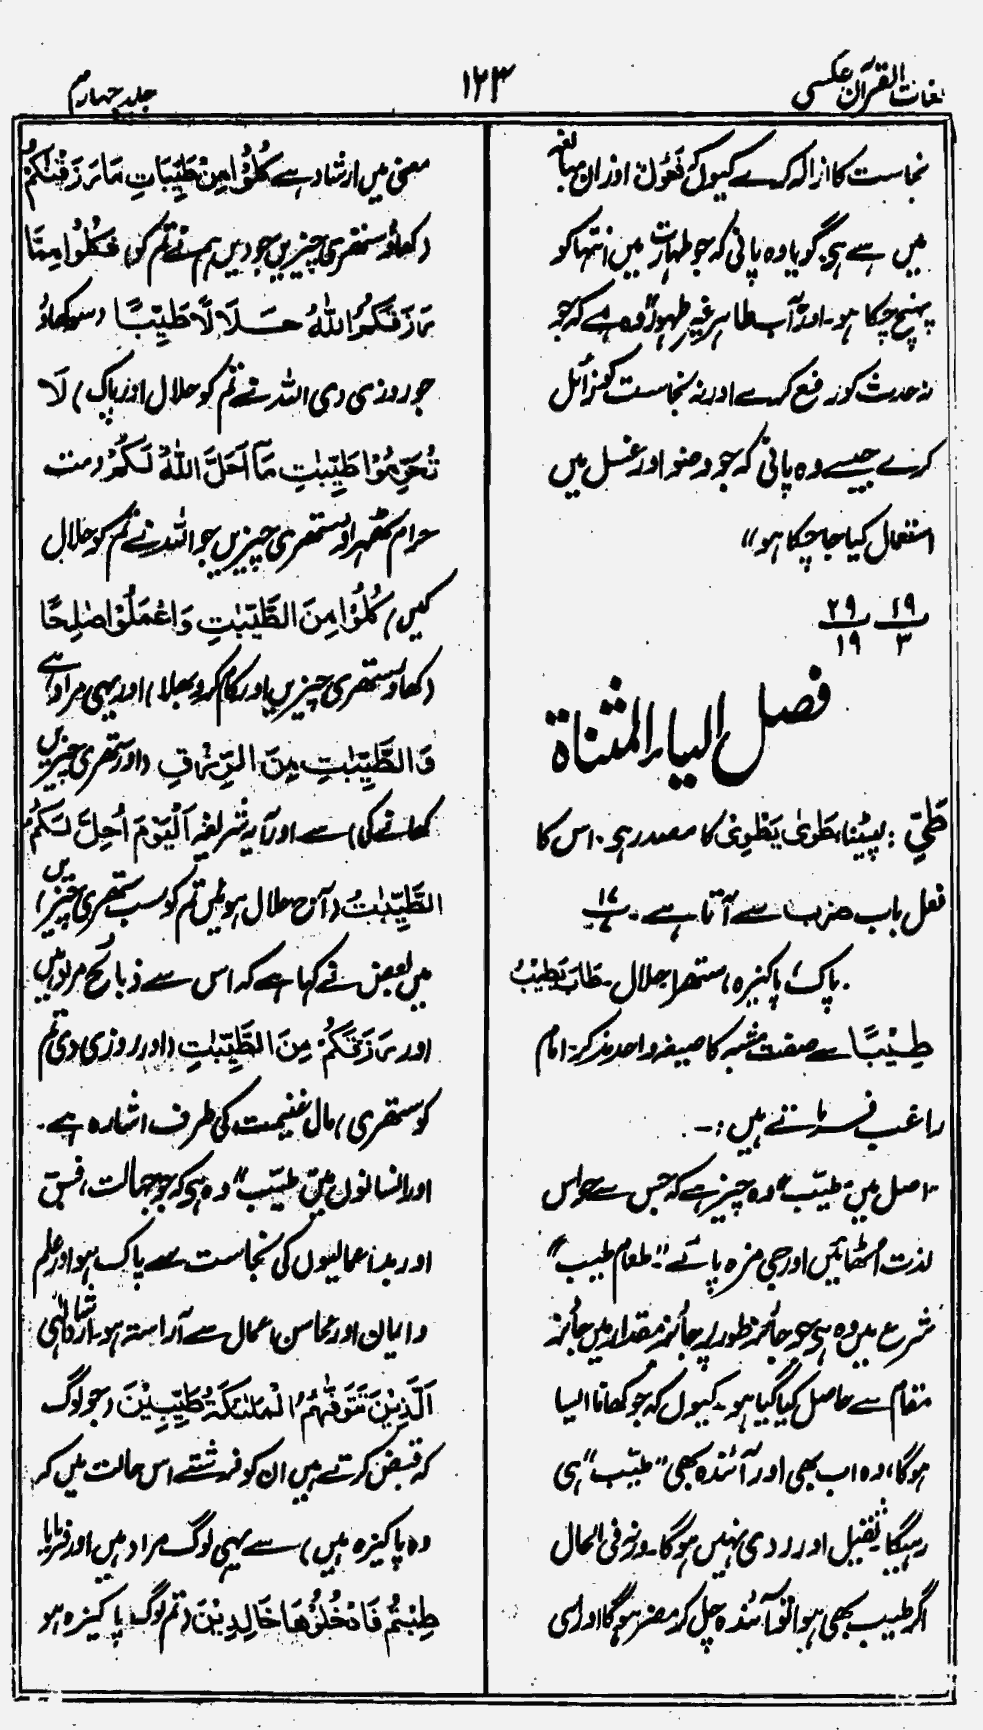 لغات القرآن عکسی
۱۲۳
جلد چہارم
نجاست کا ازالہ کرے کیوں کہ فَعُول اوزان مبالغہ
میں سے ہی۔ گویا وہ پانی کہ جو طہارت میں انتہا کو
پہنچ چکا ہو۔ اور آب طاہر غیر طہور" وہ ہے کہ جو
نہ حدث کو رفع کرے اور نہ نجاست کو زائل
کرے جیسے وہ پانی کہ جو وضو اور غسل میں
استعمال کیا جا چکا ہو"
۱۹ ۲۹
۳ ۱۹
فصل الیاء المثناۃ
طَيّ : لپیٹنا، طَوٰی یَطْوِیْ کا مصدر ہی۔ اس کا
فعل باب ضرب سے آتا ہے۔ ۱۷
پاک، پاکیزہ، ستھرا، حلال۔ طَابَ یَطِیْبُ
طِیْبًا سے صفت مشبہ کا صیغہ واحد مذکر: امام
راغب فرماتے ہیں :۔
"اصل میں "طیّب" وہ چیز ہے کہ جس سے حواس
لذت اُٹھائیں اور جی مزہ پائے"۔ "طعام طیب"
شرع میں وہ ہی جو جائز طور پر جائز مقدار میں جائز
مقام سے حاصل کیا گیا ہو۔ کیوں کہ جو کھانا ایسا
ہوگا، وہ اب بھی اور آئندہ بھی "طیّب" ہی
رہیگا ثقیل اور ردی نہیں ہوگا۔ ورنہ فی الحال
اگر طیب بھی ہوا تو آئندہ چل کر مضر ہوگا اور اسی
معنی میں ارشاد ہے کُلُوْا مِنْ طَیِّبَاتِ مَا رَزَقْنٰکُمْ
(کھاؤ ستھری چیزیں جو دیں ہم نے تم کو) فَکُلُوْا مِمَّا
رَزَقَکُمُ اللّٰہُ حَلَالًا طَیِّبًا (سو کھاؤ
جو روزی دی اللہ نے تم کو حلال اور پاک) لَا
تُحَرِّمُوْا طَیِّبٰتِ مَآ اَحَلَّ اللّٰہُ لَکُمْ (مت
حرام ٹھہراؤ ستھری چیزیں جو اللہ نے تم کو حلال
کیں) کُلُوْا مِنَ الطَّیِّبٰتِ وَاعْمَلُوْا صٰلِحًا
(کھاؤ ستھری چیزیں اور کام کرو بھلا) اور یہی مراد ہے
وَالطَّیِّبٰتِ مِنَ الرِّزْقِ (اور ستھری چیزیں
کھانے کی) سے اور آیہ شریفہ اَلْیَوْمَ اُحِلَّ لَکُمُ
الطَّیِّبٰتُ (آج حلال ہوئیں تم کو سب ستھری چیزیں)
میں بعض نے کہا ہے کہ اس سے ذبائح مراد ہیں
اور رَزَقَکُمْ مِنَ الطَّیِّبٰتِ (اور روزی دی تم
کو ستھری) مال غنیمت کی طرف اشارہ ہے۔
اور انسانوں میں "طیّب" وہ ہی کہ جو جہالت، فسق
اور بداعمالیوں کی نجاست سے پاک ہو اور علم
و ایمان اور محاسن اعمال سے آراستہ ہو۔ ارشاد الٰہی
اَلَّذِیْنَ تَتَوَفّٰهُمُ الْمَلٰئِکَۃُ طَیِّبِیْنَ (جو لوگ
کہ قبض کرتے ہیں ان کو فرشتے اس حالت میں کہ
وہ پاکیزہ ہیں) سے یہی لوگ مراد ہیں اور فرمایا
طِبْتُمْ فَادْخُلُوْهَا خَالِدِیْنَ (تم لوگ پاکیزہ ہو